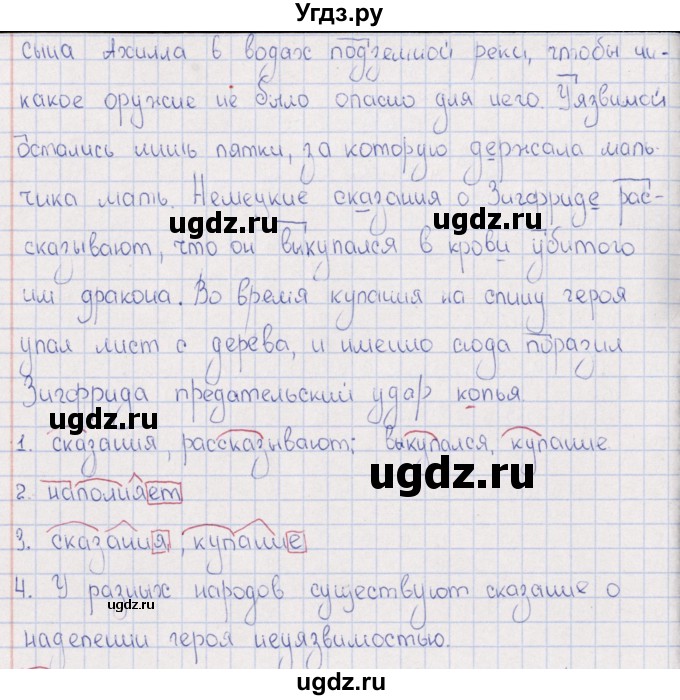 Угдз.ру
сына Ахилла в водах подземной реки, чтобы ни-
какое оружие не было опасно для него. Уязвимой
остались лишь пятки, за которую держала маль-
чика мать. Немецкие сказания о Зигфриде рас-
ugdz.ru ugdz.ru
сказывают, что он выкупался в крови убитого
им дракона. Во время купания на спину героя
упал лист с дерева, и именно сюда поразил
Зигфрида предательский удар копья
ugdz.ru
1. сказания, рассказывают; выкупался, купание
ugdz.ru
2. наполняет
3. сказания, купание
4. У разных народов существуют сказание о
ugdz.ru
наделении героя неуязвимостью.
ugdz.ru